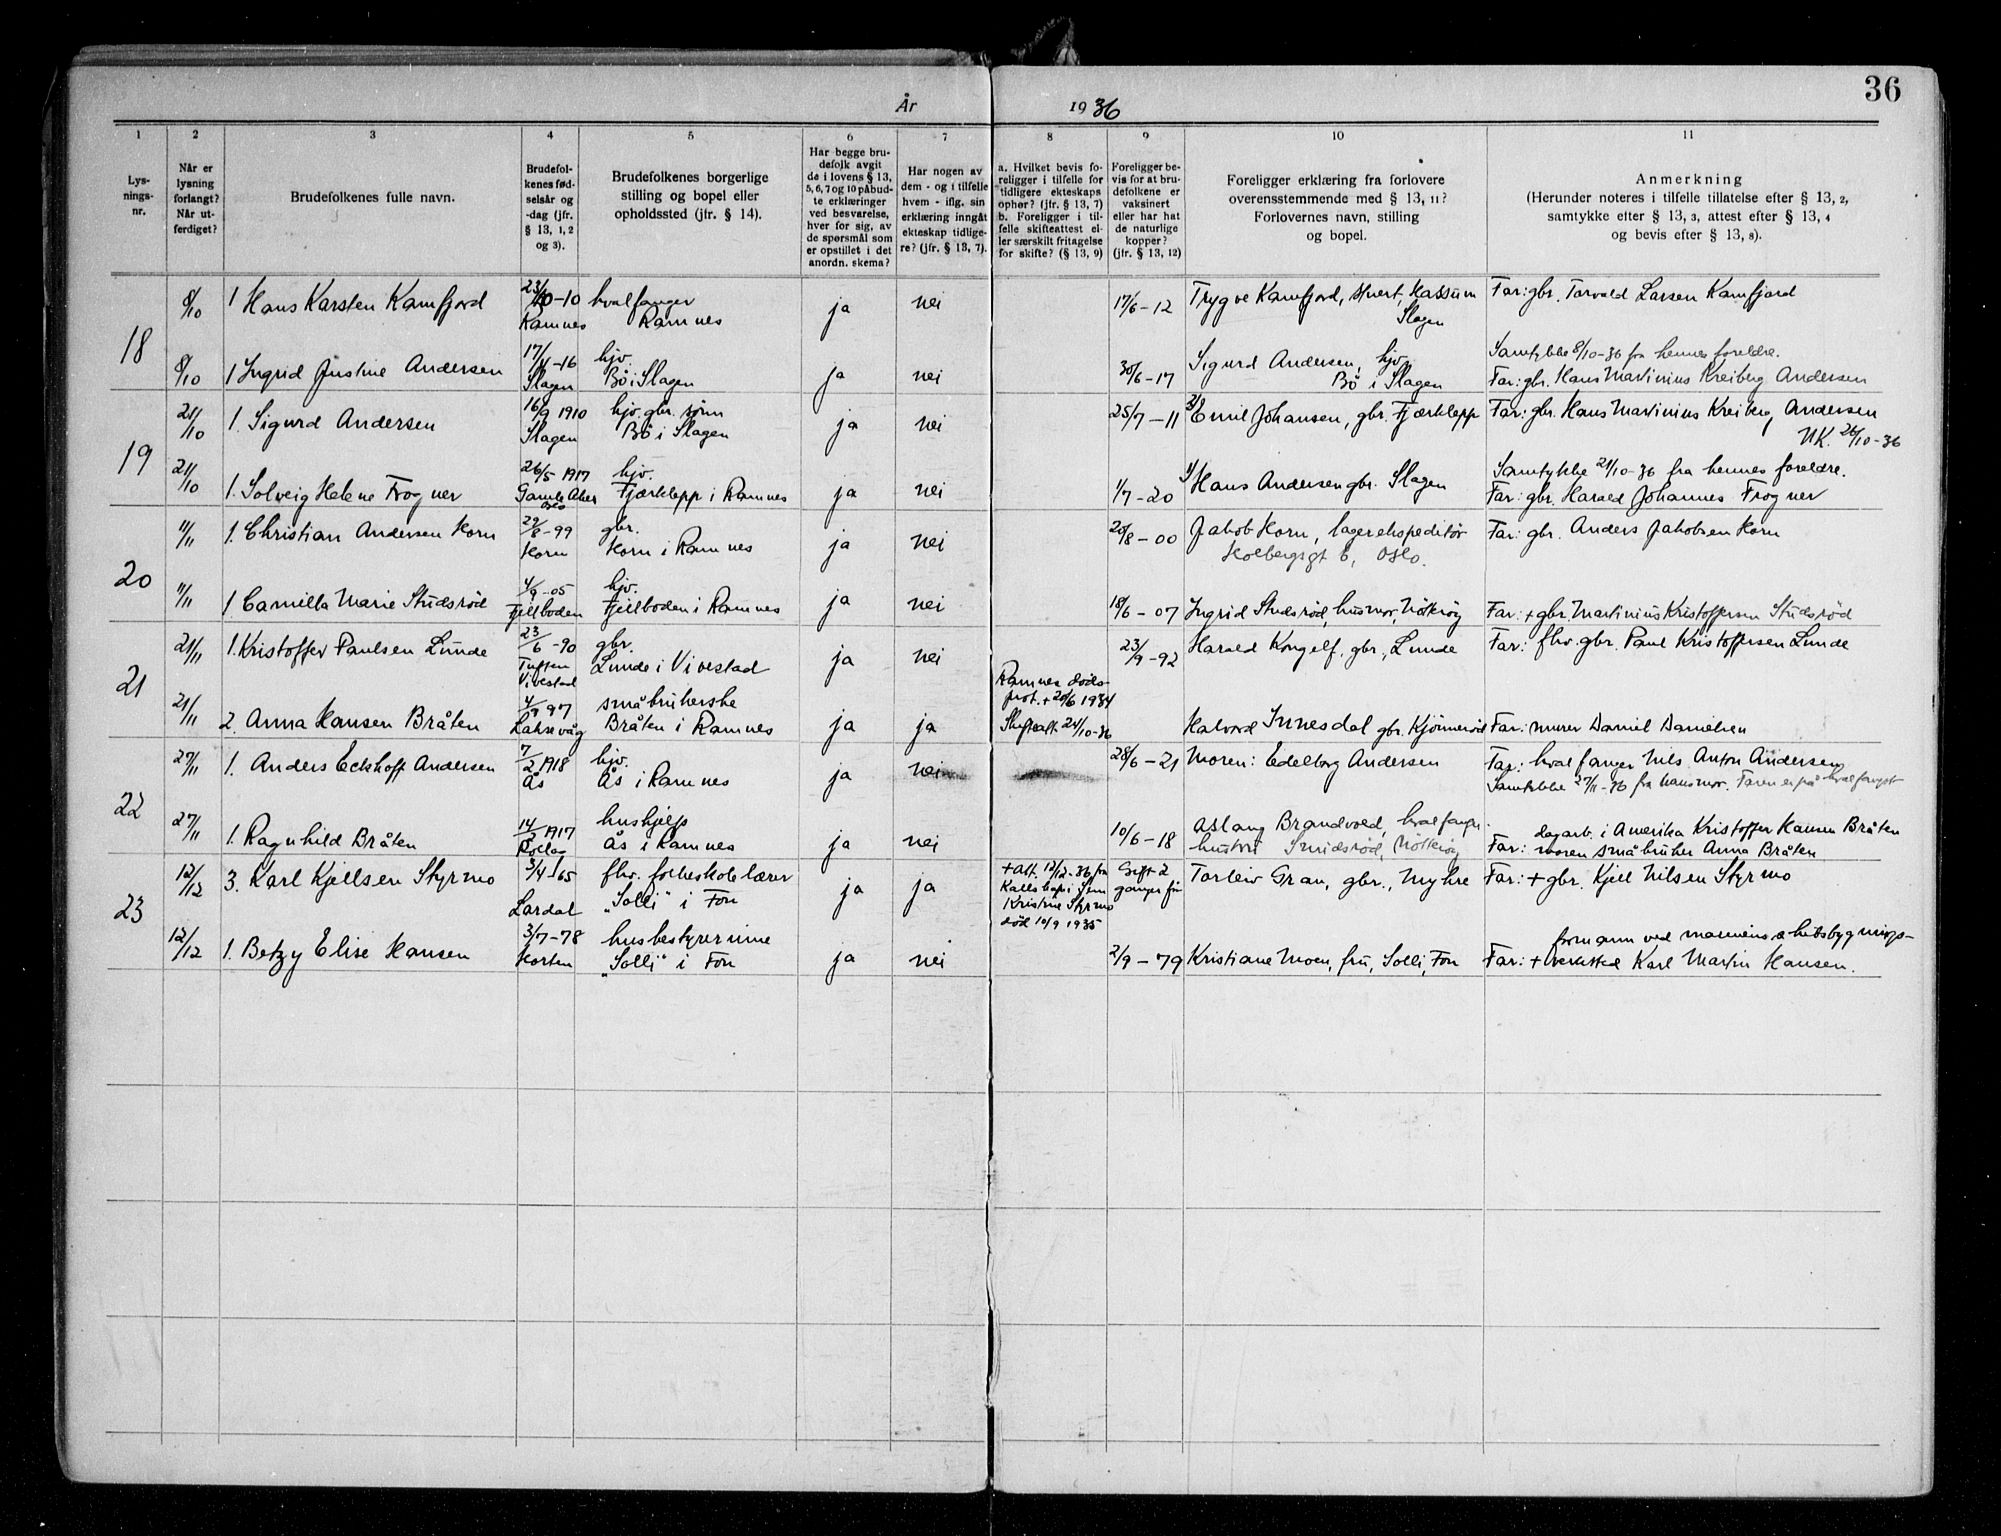 36
År 1936
1 2 3 4 5 6 7 8 9 10 11
Lys-
nings-
nr.
Når er
lysning
forlangt?
Når ut-
ferdiget?
Brudefolkenes fulle navn.
Brudefol-
kenes fød-
selsår og
-dag (jfr.
§ 13, 1, 2
og 3).
Brudefolkenes borgerlige
stilling og bopel eller
opholdssted (jfr. § 14).
Har begge bru-
defolk avgit
de i lovens § 13,
5, 6, 7 og 10 påbud-
te erklæringer
ved besvarelse,
hver for sig, av
de spørsmål som
er opstillet i det
anordn. skema?
Har nogen av
dem - og i tilfelle
hvem - iflg. sin
erklæring inngått
ekteskap tidlige-
re? (jfr. § 13, 7).
a. Hvilket bevis fo-
religger i tilfelle for
tidligere ekteskaps
ophør? (jfr. § 13, 7)
b. Foreligger i til-
felle skifteattest el-
ler særskilt fritagelse
for skifte? (§ 13, 9)
Foreligger be-
vis for at bru-
defolkene er
vaksinert
eller har hat
de naturlige
kopper?
(jfr. § 13, 12)
Foreligger erklæring fra forlovere
overensstemmende med § 13, 11?
Forlovernes navn, stilling
og bopel.
Anmerkning
(Herunder noteres i tilfelle tillatelse efter § 13, 2,
samtykke efter § 13, 3, attest efter § 13, 4
og bevis efter § 13, 8).
18
8/10 1 Hans Karsten Kamfjord 23/10-10 hvalfanger ja nei 17/6-12 Trygve Kamfjord, Far: gbr. Torvald Larsen Kamfjord
Ramnes Ramnes Slagen
8/10 1 Ingrid Justine Andersen 17/4-16 hjv. ja nei 30/6-17 Sigurd Andersen, hjv. Samtykke 8/10-36 fra hennes foreldre.
Slagen Bö i Slagen Bö i Slagen Far: gbr. Hans Martinius Kreiberg Andersen
19
21/10 1. Sigurd Andersen 16/9 1910 hjv. gbr. sönn ja nei 25/7-11 2/ Emil Johansen, gbr. Fjærklepp Far: gbr. Hans Martinius Kreiberg Andersen
Slagen Bö i Slagen UK. 26/10-36
21/10 1. Solveig Helene Frogner 26/5-1917 hjv. ja nei 1/7-20 1/ Hans Andersen gbr. Slagen Samtykke 21/10-36 fra hennes foreldre.
Gamle Aker Oslo Fjærklepp i Ramnes Far: gbr. Harald Johannes Frogner
20
11/11 1. Christian Andersen Horn 29/8-99 gbr. ja nei 20/8-00 Jakob Horn, lagerekspeditör Far: gbr. Anders Jakobsen Horn
Horn Horn i Ramnes Holbergsgt 6, Oslo.
11/11 1 Camilla Marie Studsröd 4/9-05 hjv. ja nei 18/6-07 Ingrid Studsröd, husmor, Nötteröy Far: + gbr. Martinius Kristoffersen Studsröd
Fjellboden Fjellboden i Ramnes
21
21/11 1. Kristoffer Paulsen Lunde 23/6-90 gbr. ja nei 23/9-92 Harald Kongelf, gbr., Lunde Far: fhv. gbr. Paul Kristoffersen Lunde
Vivestad Lunde i Vivestad
21/11 2. Anna Hansen Bråten 97 småbrukerske ja ja Ramnes döds-
prot. + 20/6 1934
Skifteatt. 24/10-36
Laksevåg Bråten i Ramnes Halvord Innesdal gbr. Kjönneröd Far: murer Daniel Danielsen
22
27/11 1. Anders Eckhoff Andersen 7/2 1918 hjv. ja nei 28/6-21 Moren: Edelborg Andersen Far: hvalfanger Nils Anton Andersen
Ås Ås i Ramnes Samtykke 27/11-36 fra hans mor. Faren er på hvalfangst
27/11 1. Ragnhild Bråten 14/2 1917 hushjelp ja nei 10/6-18 Aslaug Brandvold, hvalfanger-
Rollag Ås i Ramnes hustru Smidsröd, Nötteröy
dagarb. i Amerika Kristoffer Hansen Bråten
Far: moren småbruker Anna Bråten
23
12/12 3. Karl Kjellsen Styrmo 3/4-65 fhv. folkeskolelærer ja ja + att. 12/12-36 fra
kallskap i Sem
Kristine Styrmo
död 10/9 1935
Gift 2
ganger för
Torleiv Gran, gbr., Myhre Far: + gbr. Kjell Nilsen Styrmo
Lardal "Solli" i Fon
12/12 1. Betzy Elise Hansen 3/7-78 husbestyrerinne ja nei 2/9-79 Kristiane Moen, fru, Solli, Fon
Horten "Solli" i Fon
formann ved marinens skibsbygnings-
Far: + verksted Karl Martin Hansen.